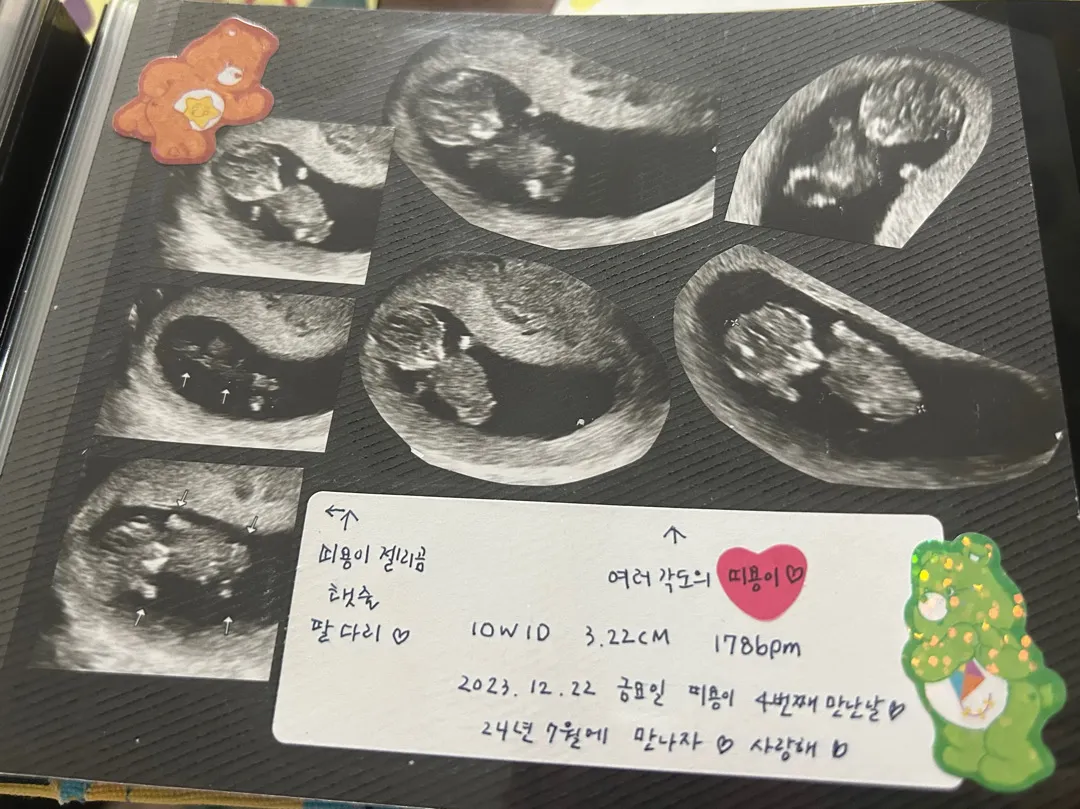 ←↑
띠용이 젤리곰
탯줄
팔 다리 ♡
↑
여러 각도의 띠용이 ♡
10W1D 3.22CM 178bpm
2023.12.22 금요일 띠용이 4번째 만난날 ♡
24년 7월에 만나자 ♡ 사랑해 ♡